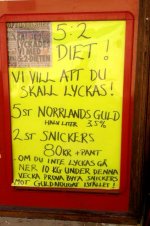 LYCKADES
VI MED
5:2 DIETEN
5:2
DIET!
VI VILL ATT DU
SKALL LYCKAS!
5ST NORRLANDS GULD
HALV LITER 3.5%
2ST SNICKERS
80KR + PANT
OM DU INTE LYCKAS GÅ
NER 10 KG UNDER DENNA
VECKA PROVA BYTA SNICKERS
MOT GULDNOUGAT ISTÄLLET!